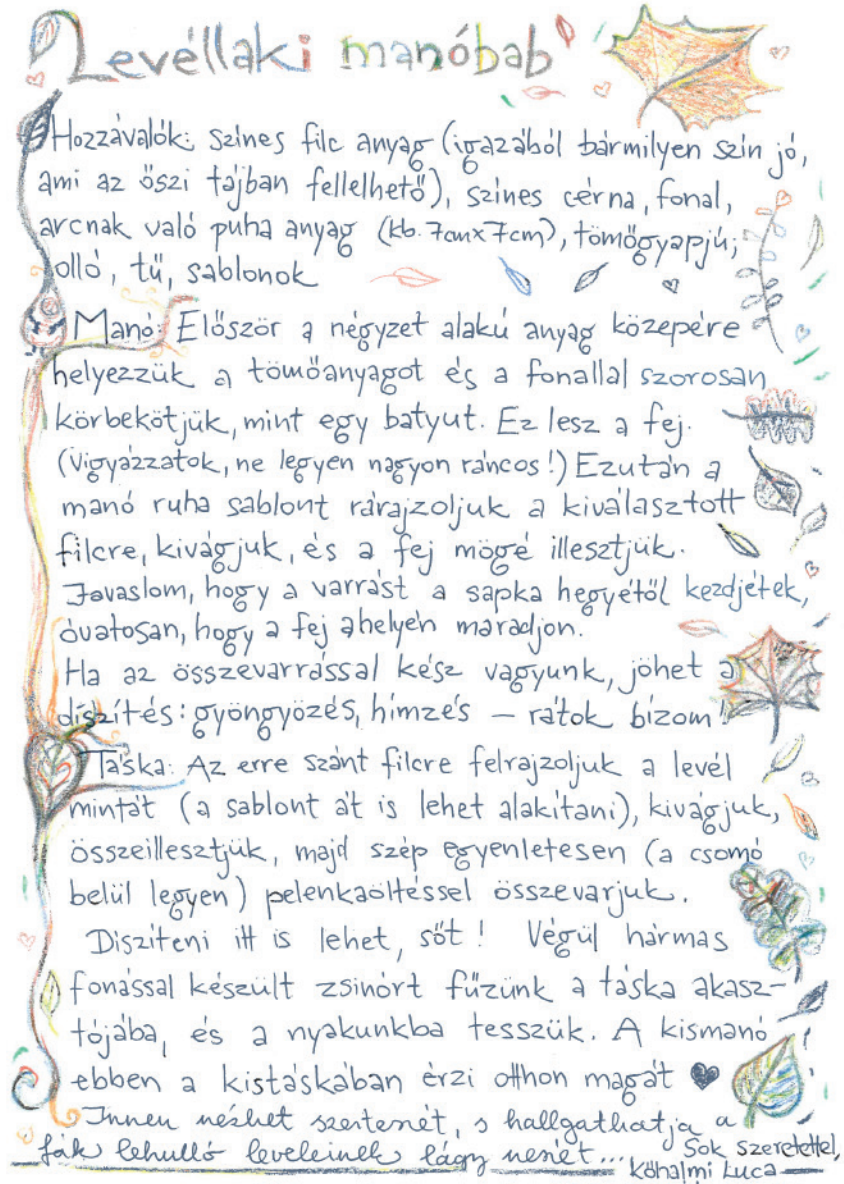 Levéllaki manóbab
Hozzávalók: színes filc anyag (igazából bármilyen szín jó,
ami az őszi tájban fellelhető), színes cérna, fonal,
arcnak való puha anyag (kb. 7cmx7cm), tömőgyapjú,
olló, tű, sablonok
Manó: Először a négyzet alakú anyag közepére
helyezzük a tömőanyagot és a fonallal szorosan
körbekötjük, mint egy batyut. Ez lesz a fej.
(Vigyázzatok, ne legyen nagyon ráncos!) Ezután a
manó ruha sablont rárajzoljuk a kiválasztott
filcre, kivágjuk, és a fej mögé illesztjük.
Javaslom, hogy a varrást a sapka hegyétől kezdjétek,
óvatosan, hogy a fej a helyén maradjon.
Ha az összevarrással kész vagyunk, jöhet a
díszítés: gyöngyözés, hímzés – rátok bízom!
Táska: Az erre szánt filcre felrajzoljuk a levél
mintát (a sablont át is lehet alakítani), kivágjuk,
összeillesztjük, majd szép egyenletesen (a csomó
belül legyen) pelenkaöltéssel összevarjuk.
Díszíteni itt is lehet, sőt! Végül hármas
fonással készült zsinórt fűzünk a táska akasz-
tójába, és a nyakunkba tesszük. A kismanó
ebben a kistáskában érzi otthon magát ♥
Innen nézhet szertenét, s hallgathatja a
fák lehulló leveleinek lágy neszét...
Sok szeretettel,
Kőhalmi Luca